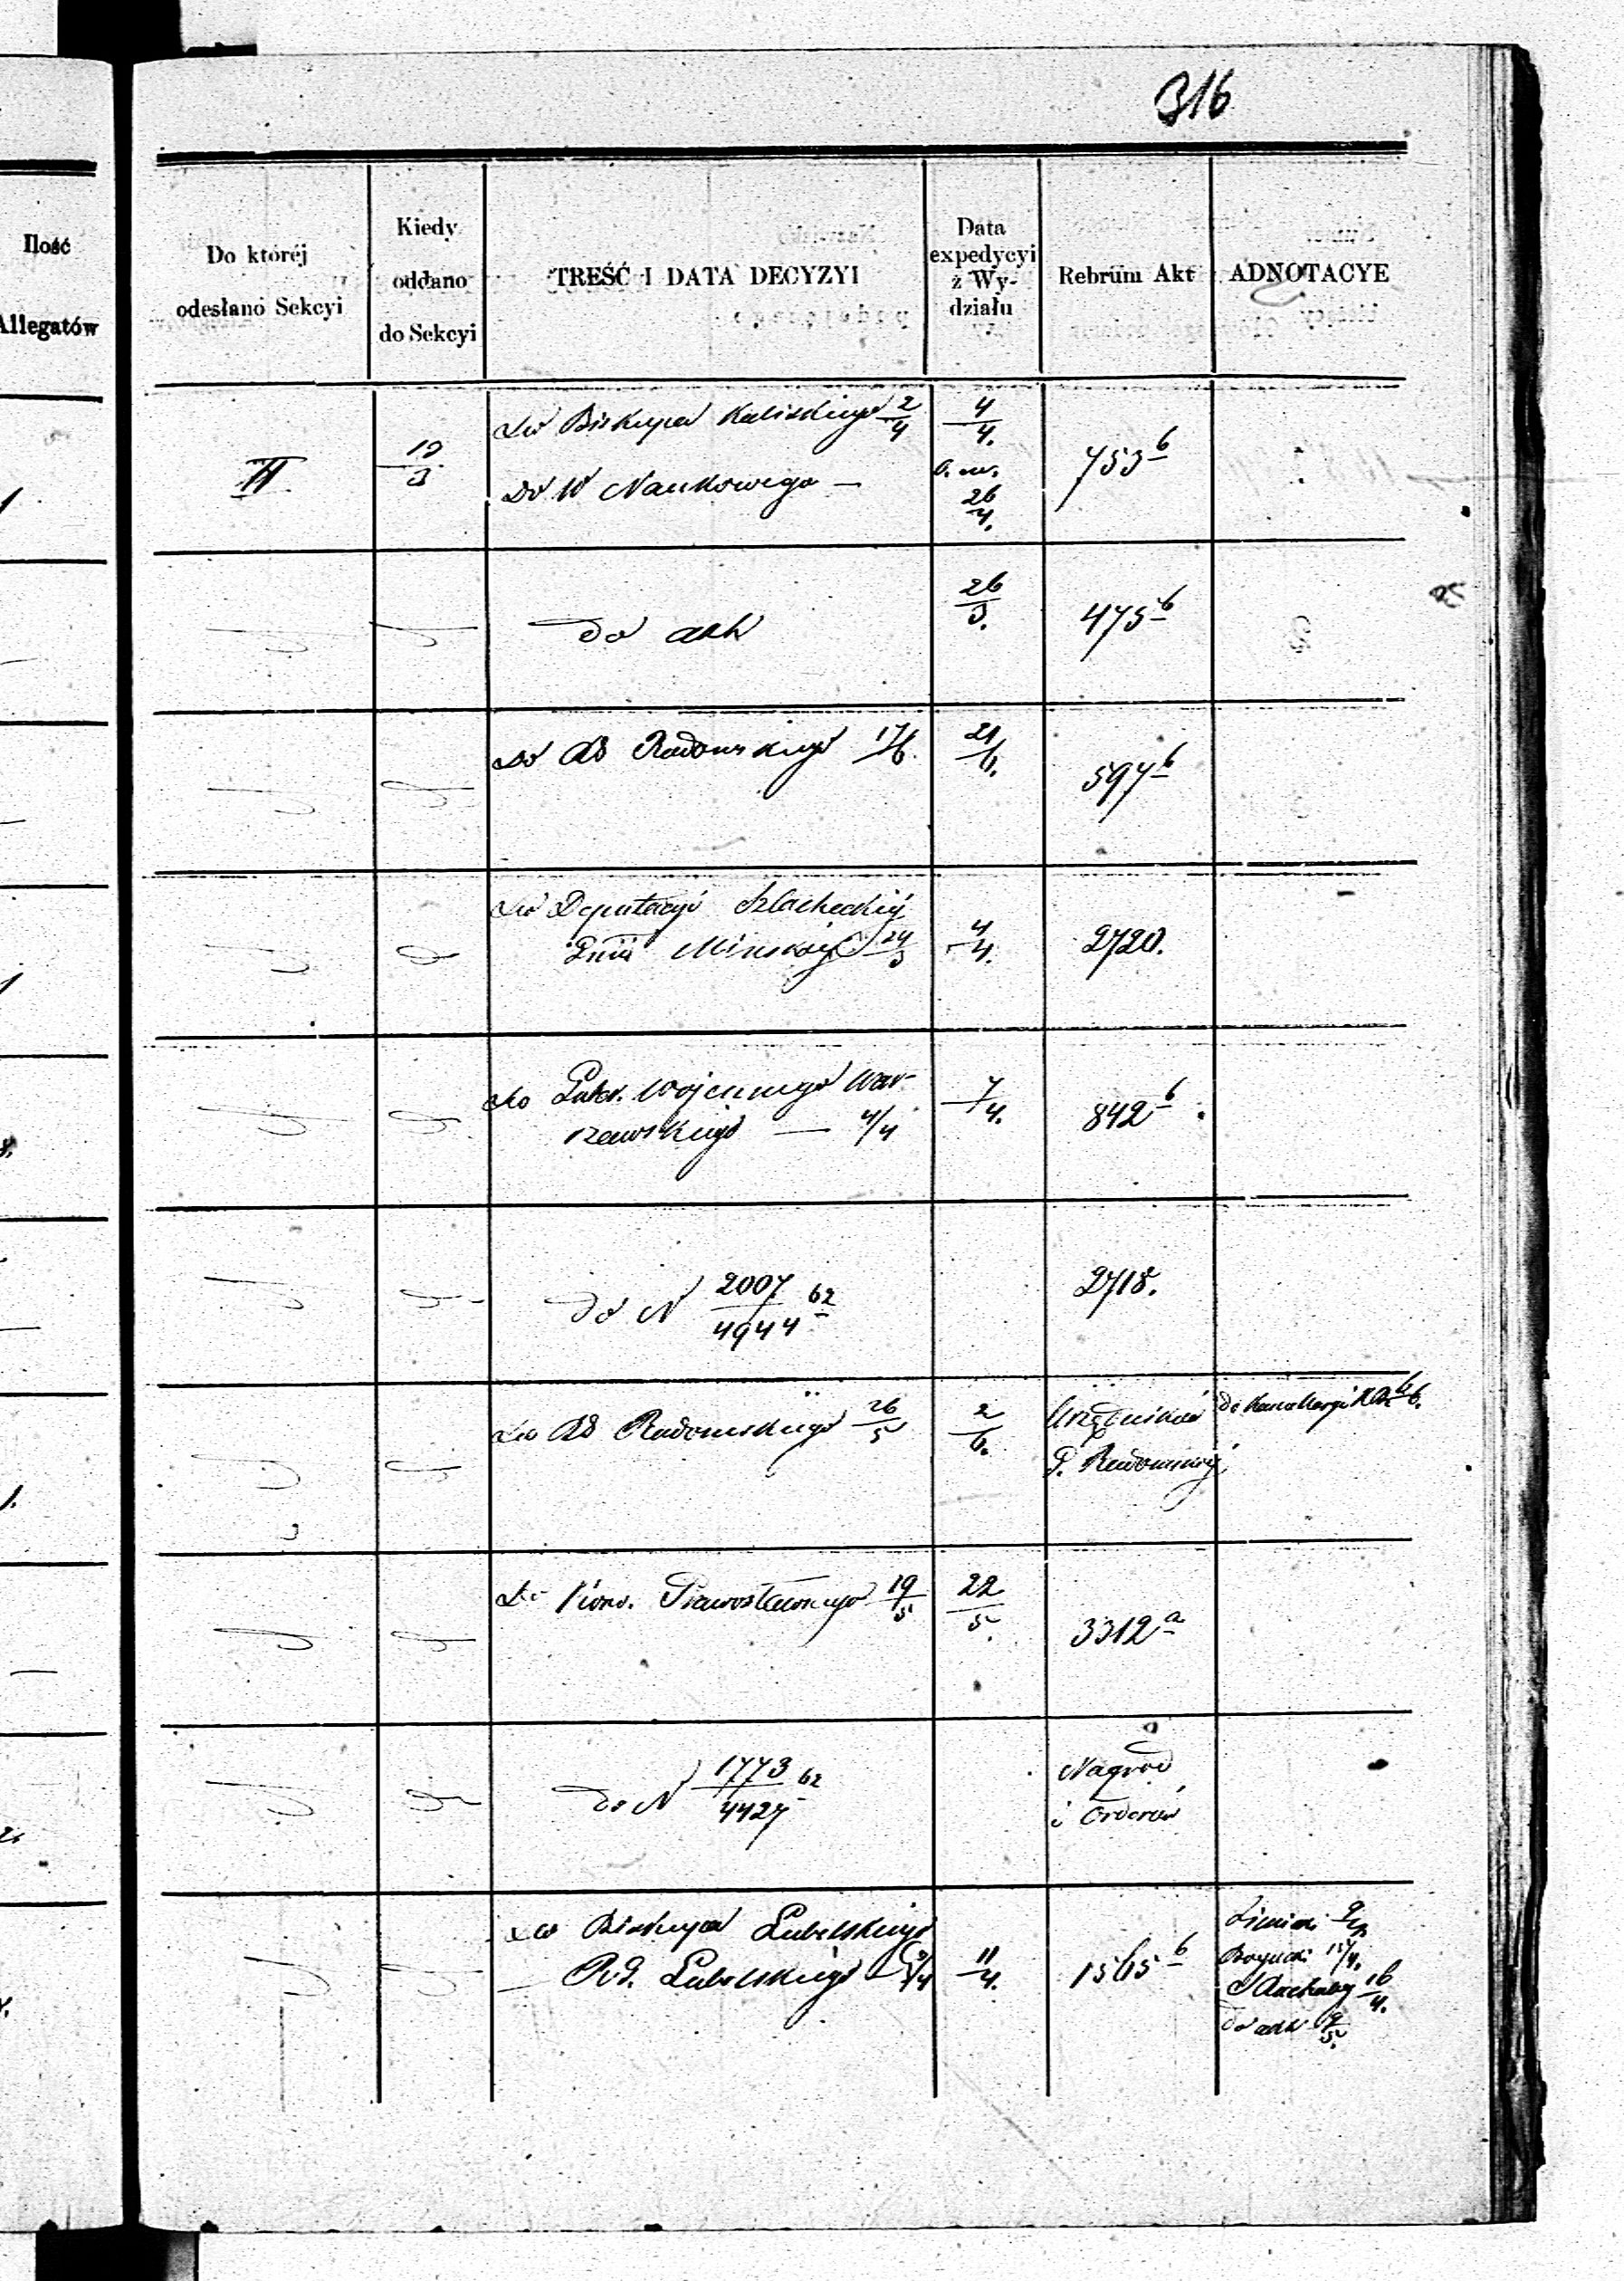 316
Ilość
Allegatów
Do któréj
odesłano Sekcyi
Kiedy
oddano
do Sekcyi
TREŚĆ I DATA DECYZYI
Data
expedycyi
z Wy-
działu
Rebrum Akt
ADNOTACYE
II 19/3 Do Biskupa Kaliskiego 2/4 4/4. 753 b
Do W Naukowego — 26/4.
do akt 26/3. 475 b
Do RG Radomskiego 17/6. 21/6. 597 b
Do Deputacyi Szlacheckiéj
Gnii Mińskiéj 24/3 4/4. 2720.
Do Gubr. Wojennego War-
szawskiego — 4/4 7/4. 842 b
do N 2007/4944 62 2718.
Do RG Radomskiego 26/5 2/6. Urzędników do Kancellaryi
G. Radomskiéj
Do Kons. Prawosławnego 19/5 22/5. 3312 a
do N 1773/4427 62 Nagród
i Orderów
Do Biskupa Lubelskiego
— R.G. Lubelskiego 11/4. 1565 b
15/4.
16/4.
do akt 9/5.